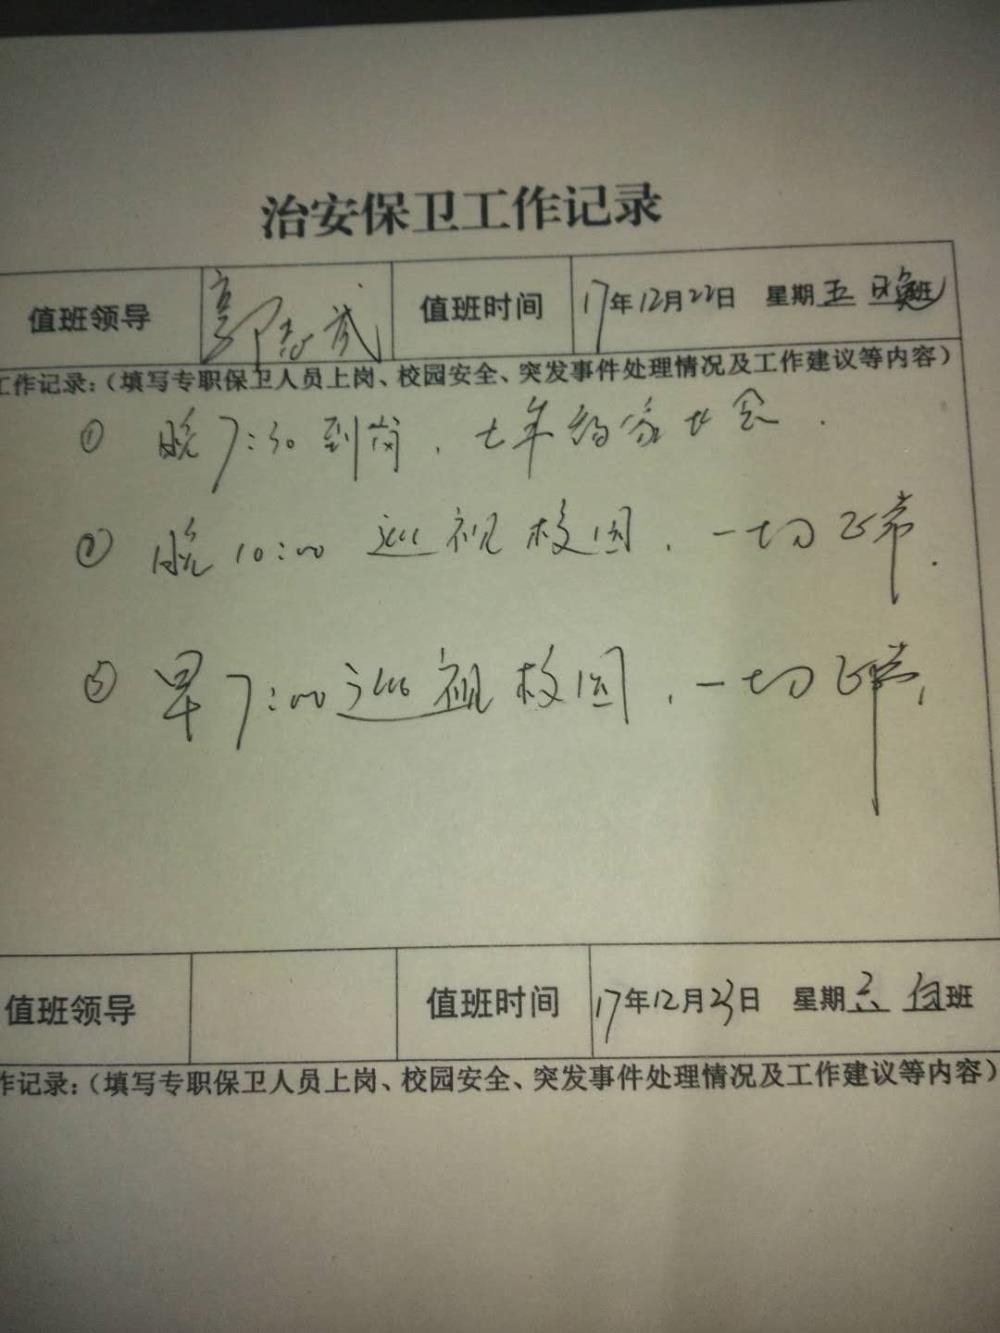 治安保卫工作记录
值班领导 郭志武 值班时间 17年12月22日 星期五 晚班
工作记录：（填写专职保卫人员上岗、校园安全、突发事件处理情况及工作建议等内容）
① 晚7:30到岗，七年级家长会．
② 晚10:00 巡视校园，一切正常．
③ 早7:00巡视校园，一切正常，
值班领导 值班时间 17年12月23日 星期六 白班
作记录：（填写专职保卫人员上岗、校园安全、突发事件处理情况及工作建议等内容）